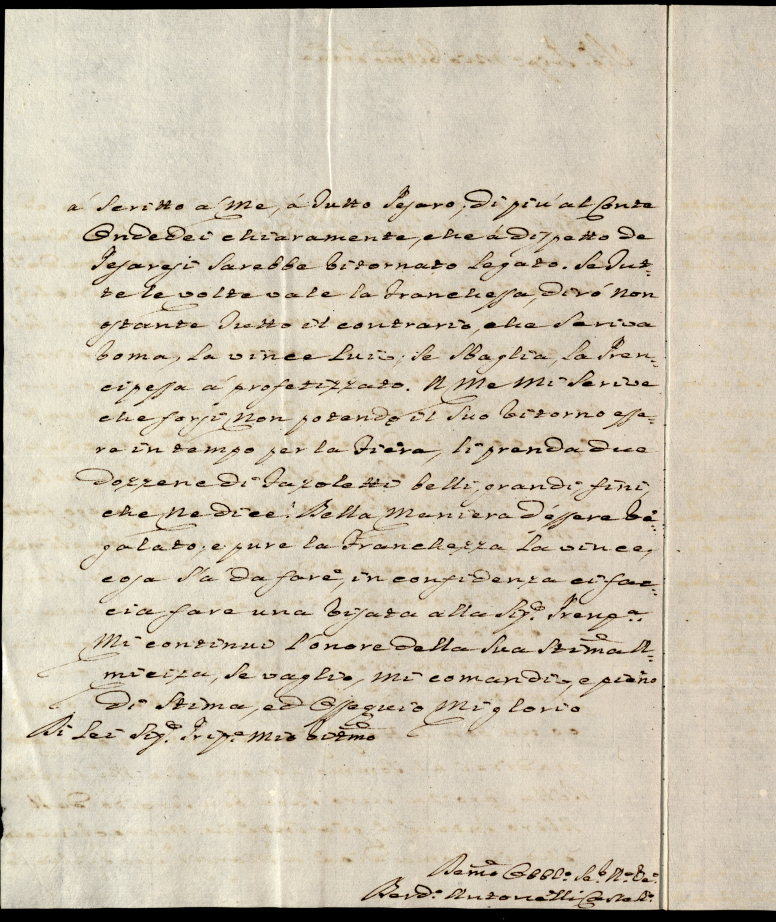 á Scritto a Me, á Tutto Pesaro, di piu' al Conte
Ondedei chiaramente, che á dispetto de
Pesaresi Sarebbe Ritornato Legato. Se Tut=
te le volte vale la Franchessa, diró non
ostante Tutto il contrario, che Scriva
Roma, la vince Lui; se Sbaglia, la Pren=
cipessa á profetizzato. A Me Mi Scrive
che forsi, Non potendo il Suo Ritorno esse=
re in tempo per la Fiera, li prenda due
dozzene di Fazoletti belli, grandi, fini,
che Ne dice? Bella Maniera d'essere Re=
galato, e pure la Franchezza La vince,
cosa S'a da fare, in confidenza ci fac=
cia fare una Risata alla Sig.ª Prenp.ª
Mi continui l'onore della Sua Stima A=
micizia, Se vaglio, mi comandi, e pieno
di Stima, ed Ossequio Mi glorio
Di Lei Sig.ª Mio
Obbl.º Se.
Antonelli